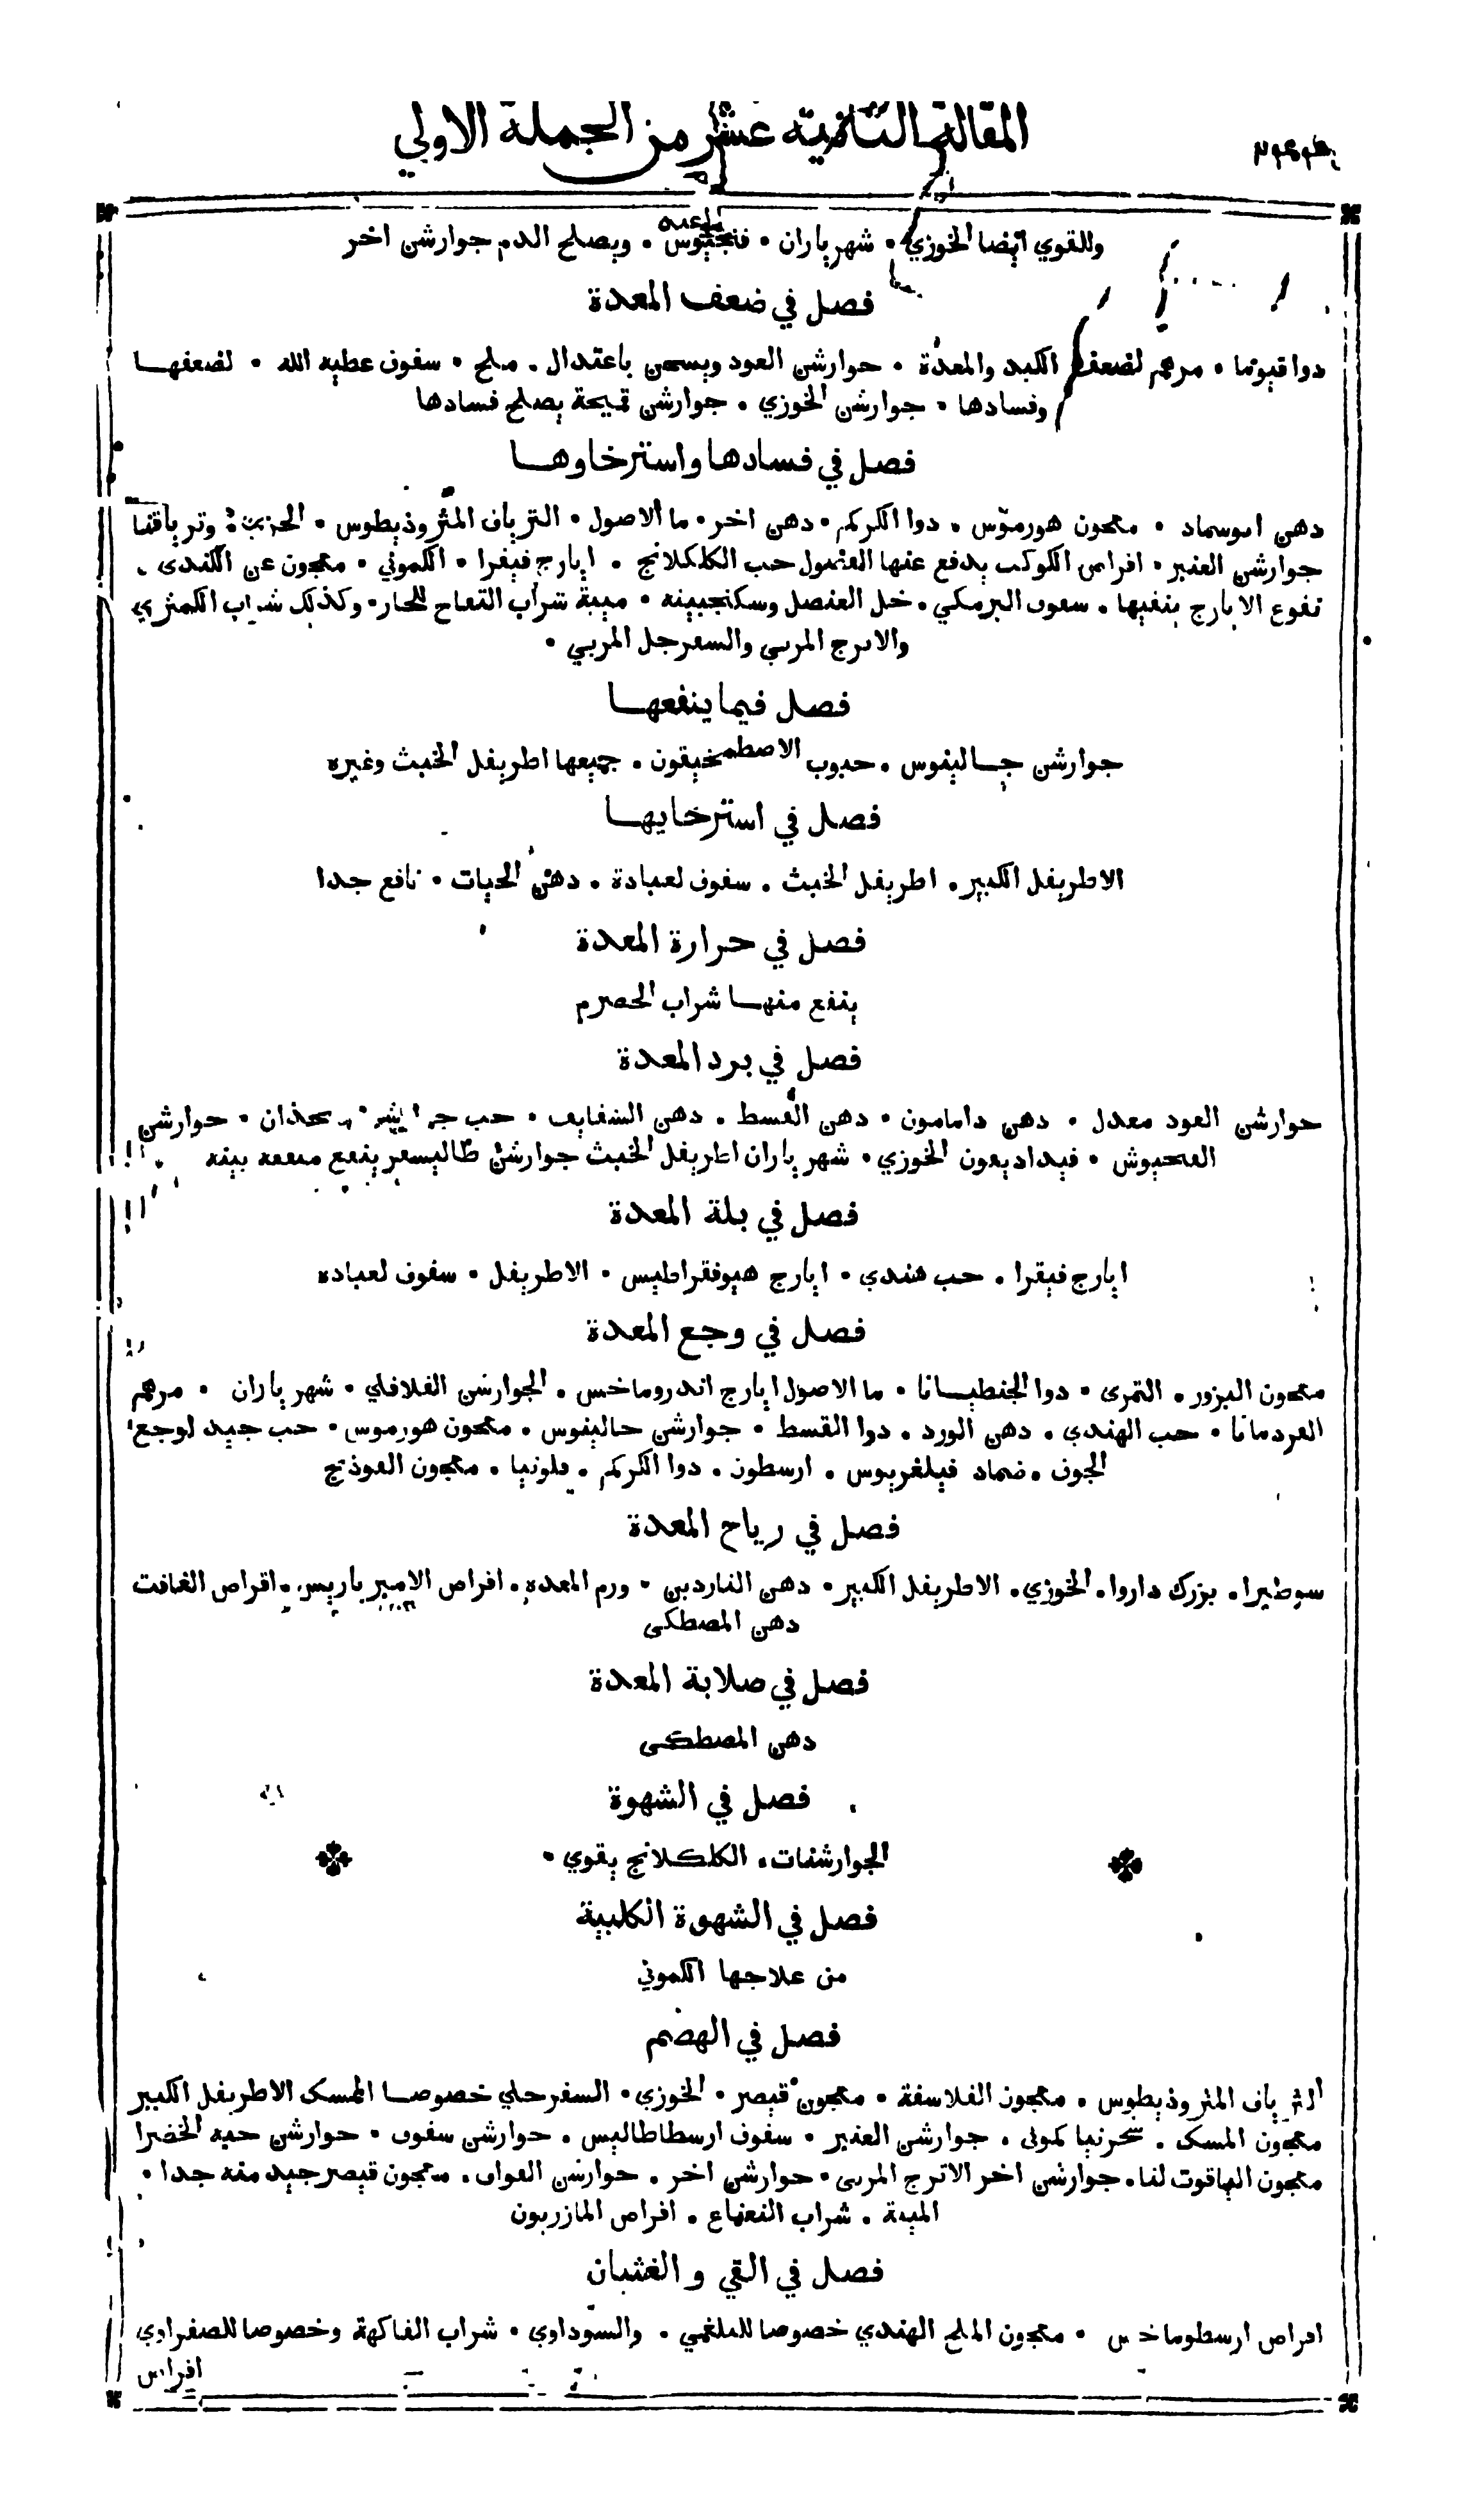 المقالة الثانية عشر من الجملة الاولي
وللقوي ايضا الخوزي • شهرياران • فنجنوس • ويصلح الدم جوارشن اخر
فصل في ضعف المعدة
دوا قيوما • مرهم لضعف الكبد والمعدة • جوارشن العود ويسخن باعتدال • ملح • سفوف عطيه الله • لضعفها
وفسادها • جوارشن الخوزي • جوارشن تميحة يصلح فسادها
فصل في فسادها واسترخاوها
دهن • معجون هورموس • دوا الكركم • دهن اخر • ما الاصول • الترياق المثروذيطوس • وترياقنا
جوارشن العنبر • اقراص الكوكب يدفع عنها الفضول حب الكلكلانج • ايارج فيقرا • الكموني • معجون عن الكندى •
نقوع الايارج ينقيها • سفوف البرمكي • خل العنصل وسكنجبينه • ميبة شراب التفاح للحار • وكذلك شراب الكمثري
والاترج المربي والسفرجل المربي •
فصل فيما ينفعها
جوارشن جالينوس • حبوب الاصطمخيقون • جميعها اطريفل الخبث وغيره
فصل في استرخايها
الاطريفل الكبير • اطريفل الخبث • سفوف لعبادة • دهن الحيات • نافع جدا
فصل في حرارة المعدة
ينفع منها شراب الحصرم
فصل في برد المعدة
جوارشن العود معدل • دهن دامامون • دهن القسط • دهن • حب • جوارشن
الخوزي • شهرياران اطريفل الخبث جوارشن ينفع منفعه بينه
فصل في بلة المعدة
ايارج فيقرا • حب هندي • ايارج هيوفقراطيس • الاطريفل • سفوف لعباده
فصل في وجع المعدة
معجون البزور • التمرى • دوا الجنطيانا • ما الاصول ايارج اندروماخس • الجوارشن الفلافلي • شهرياران • مرهم
القردمانا • حب الهندي • دهن الورد • دوا القسط • جوارشن جالينوس • معجون هورموس • حب جيد لوجع
الجوف • ضماد فيلغريوس • ارسطون • دوا الكركم • فلونيا • معجون الفوذنج
فصل في رياح المعدة
سوطيرا • بزرك داروا • الخوزي • الاطريفل الكبير • دهن الناردين • ورم المعدة • اقراص الامير باريس • اقراص الغافت
دهن المصطكى
فصل في صلابة المعدة
دهن المصطكى
فصل في الشهوة
الجوارشنات • الكلكلانج يقوي •
فصل في الشهوة الكلبية
من علاجها الكموني
فصل في الهضم
الترياق المثروذيطوس • معجون الفلاسفة • معجون قيصر • الخوزي • السفرجلي خصوصا الممسك الاطريفل الكبير
معجون المسك • سجرنيا كموني • جوارشن العنبر • سفوف ارسطاطاليس • جوارشن سفوف • جوارشن حبه الخضرا
معجون الياقوت لنا • جوارشن اخر الاترج المربى • جوارشن اخر • جوارشن الفواق • معجون قيصر جيد منه جدا •
الميبة • شراب النعناع • اقراص المازريون
فصل في القي والغثيان
اقراص ارسطوماخس • معجون الملح الهندي خصوصا للبلغمي • والسوداوي • شراب الفاكهة وخصوصا للصفراوي
اقراص